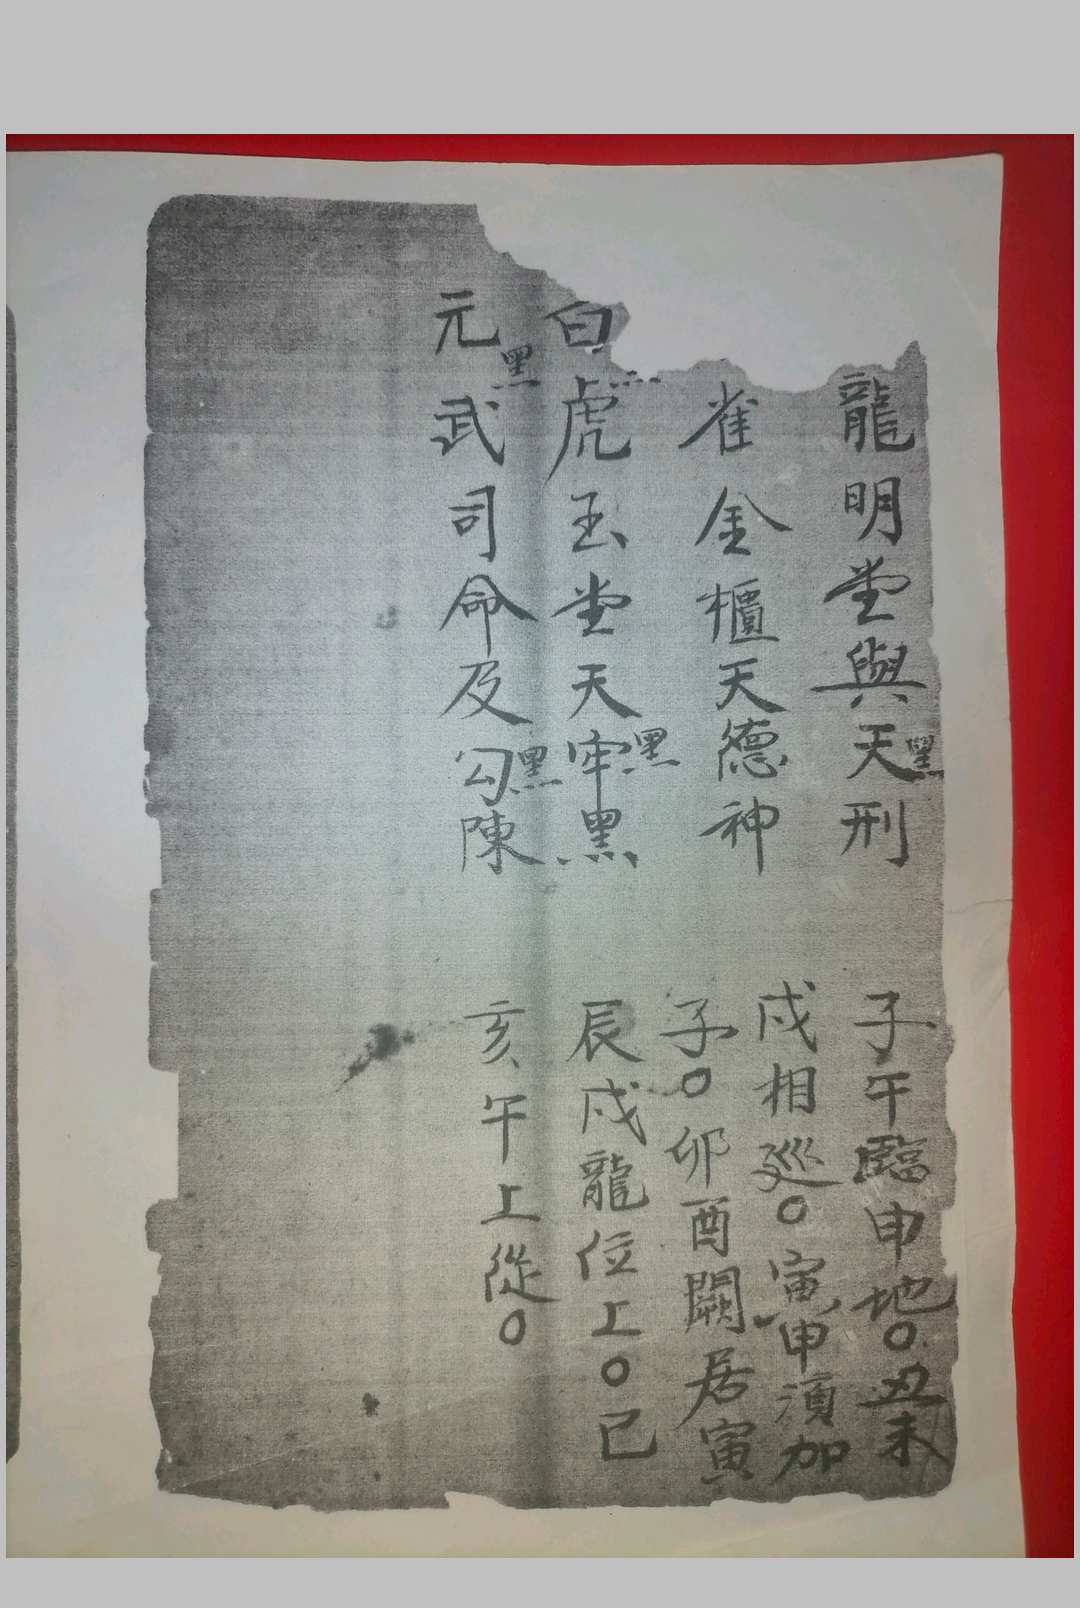 龍明堂與天刑
黑
雀金櫃天德神
白虎玉堂天牢黑
黑
元武司命及勾陳
黑
黑
子午臨申地○丑未
戌相廵○寅申須加
子○卯酉闕居寅
辰戌龍位上○已
亥午上從○